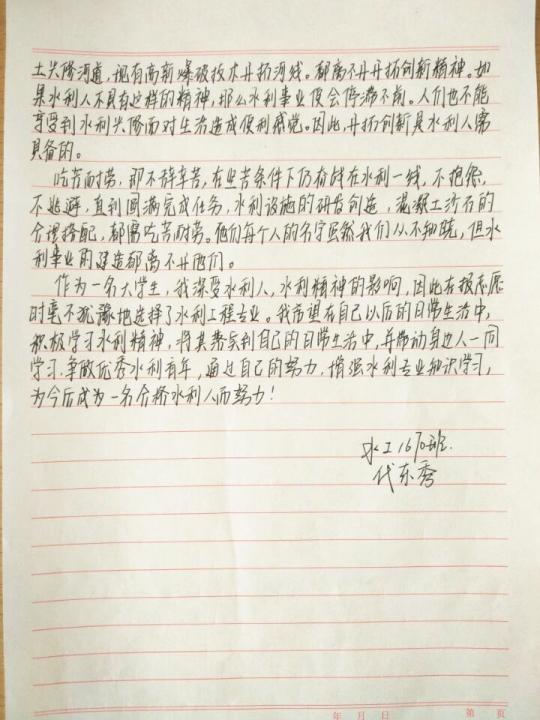 土兴修河道,现有高新爆破技术开拓河线。都离不开开拓创新精神。如
果水利人不具有这样的精神,那么水利事业便会停滞不前。人们也不能
享受到水利兴修而对生活造成便利感觉。因此,开拓创新是水利人需
具备的。
吃苦耐劳,即不辞辛苦,在坚苦条件下仍奋战在水利一线,不抱怨,
不逃避,直到圆满完成任务,水利设施的研发创造,混凝土沙石的
合理搭配,都需吃苦耐劳。他们每个人的名字虽然我们从不知晓,但水
利事业的建造都离不开他们。
作为一名大学生,我深受水利人,水利精神的影响,因此在报志愿
时毫不犹豫地选择了水利工程专业。我希望在自己以后的日常生活中,
积极学习水利精神,将其落实到自己的日常生活中,并带动身边人一同
学习.争做优秀水利青年,通过自己的努力,增强水利专业知识学习,
为今后成为一名合格水利人而努力!
水工1670班.
代东秀
年 月 日 第 页